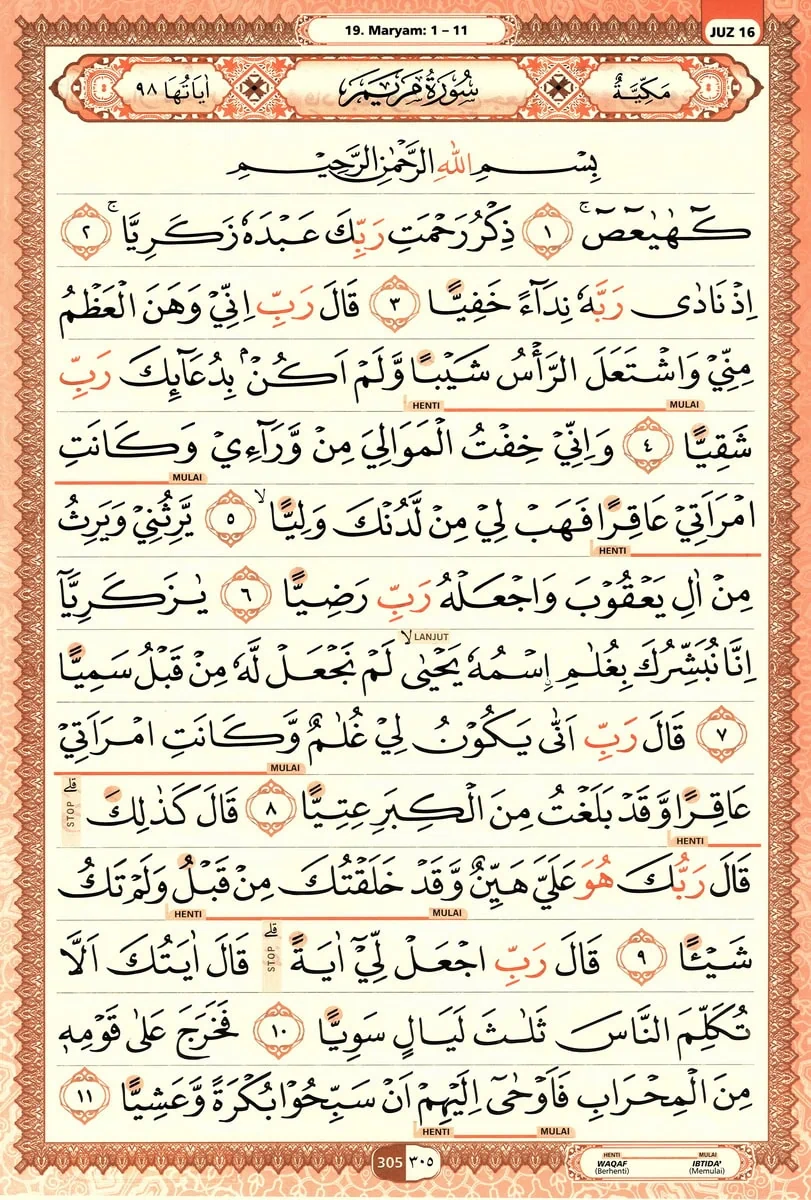 19. Maryam: 1 – 11
JUZ 16
مَكِّيَّةٌ سُوْرَةُ مَرْيَمَ اٰيَاتُهَا ٩٨
بِسْمِ اللّٰهِ الرَّحْمٰنِ الرَّحِيْمِ
كۤهٰيٰعۤصۤ ۚ ١ ذِكْرُ رَحْمَتِ رَبِّكَ عَبْدَهٗ زَكَرِيَّا ۚ ٢
اِذْ نَادٰى رَبَّهٗ نِدَاۤءً خَفِيًّا ٣ قَالَ رَبِّ اِنِّيْ وَهَنَ الْعَظْمُ
مِنِّيْ وَاشْتَعَلَ الرَّأْسُ شَيْبًا وَّلَمْ اَكُنْۢ بِدُعَاۤىِٕكَ رَبِّ
HENTI MULAI
شَقِيًّا ٤ وَاِنِّيْ خِفْتُ الْمَوَالِيَ مِنْ وَّرَاۤءِيْ وَكَانَتِ
MULAI
امْرَاَتِيْ عَاقِرًا فَهَبْ لِيْ مِنْ لَّدُنْكَ وَلِيًّا ۙ ٥ يَّرِثُنِيْ وَيَرِثُ
HENTI
مِنْ اٰلِ يَعْقُوْبَ وَاجْعَلْهُ رَبِّ رَضِيًّا ٦ يٰزَكَرِيَّآ
اِنَّا نُبَشِّرُكَ بِغُلٰمِ ِۨاسْمُهٗ يَحْيٰىۙ لَمْ نَجْعَلْ لَّهٗ مِنْ قَبْلُ سَمِيًّا
LANJUT
٧ قَالَ رَبِّ اَنّٰى يَكُوْنُ لِيْ غُلٰمٌ وَّكَانَتِ امْرَاَتِيْ
MULAI
عَاقِرًا وَّقَدْ بَلَغْتُ مِنَ الْكِبَرِ عِتِيًّا ٨ قَالَ كَذٰلِكَ ۗ STOP
HENTI
قَالَ رَبُّكَ هُوَ عَلَيَّ هَيِّنٌ وَّقَدْ خَلَقْتُكَ مِنْ قَبْلُ وَلَمْ تَكُ
HENTI MULAI
شَيْـًٔا ٩ قَالَ رَبِّ اجْعَلْ لِّيْٓ اٰيَةً ۗ STOP قَالَ اٰيَتُكَ اَلَّا
تُكَلِّمَ النَّاسَ ثَلٰثَ لَيَالٍ سَوِيًّا ١٠ فَخَرَجَ عَلٰى قَوْمِهٖ
مِنَ الْمِحْرَابِ فَاَوْحٰىٓ اِلَيْهِمْ اَنْ سَبِّحُوْا بُكْرَةً وَّعَشِيًّا ١١
HENTI MULAI
305 ٣٠٥
HENTI MULAI
WAQAF IBTIDA'
(Berhenti) (Memulai)